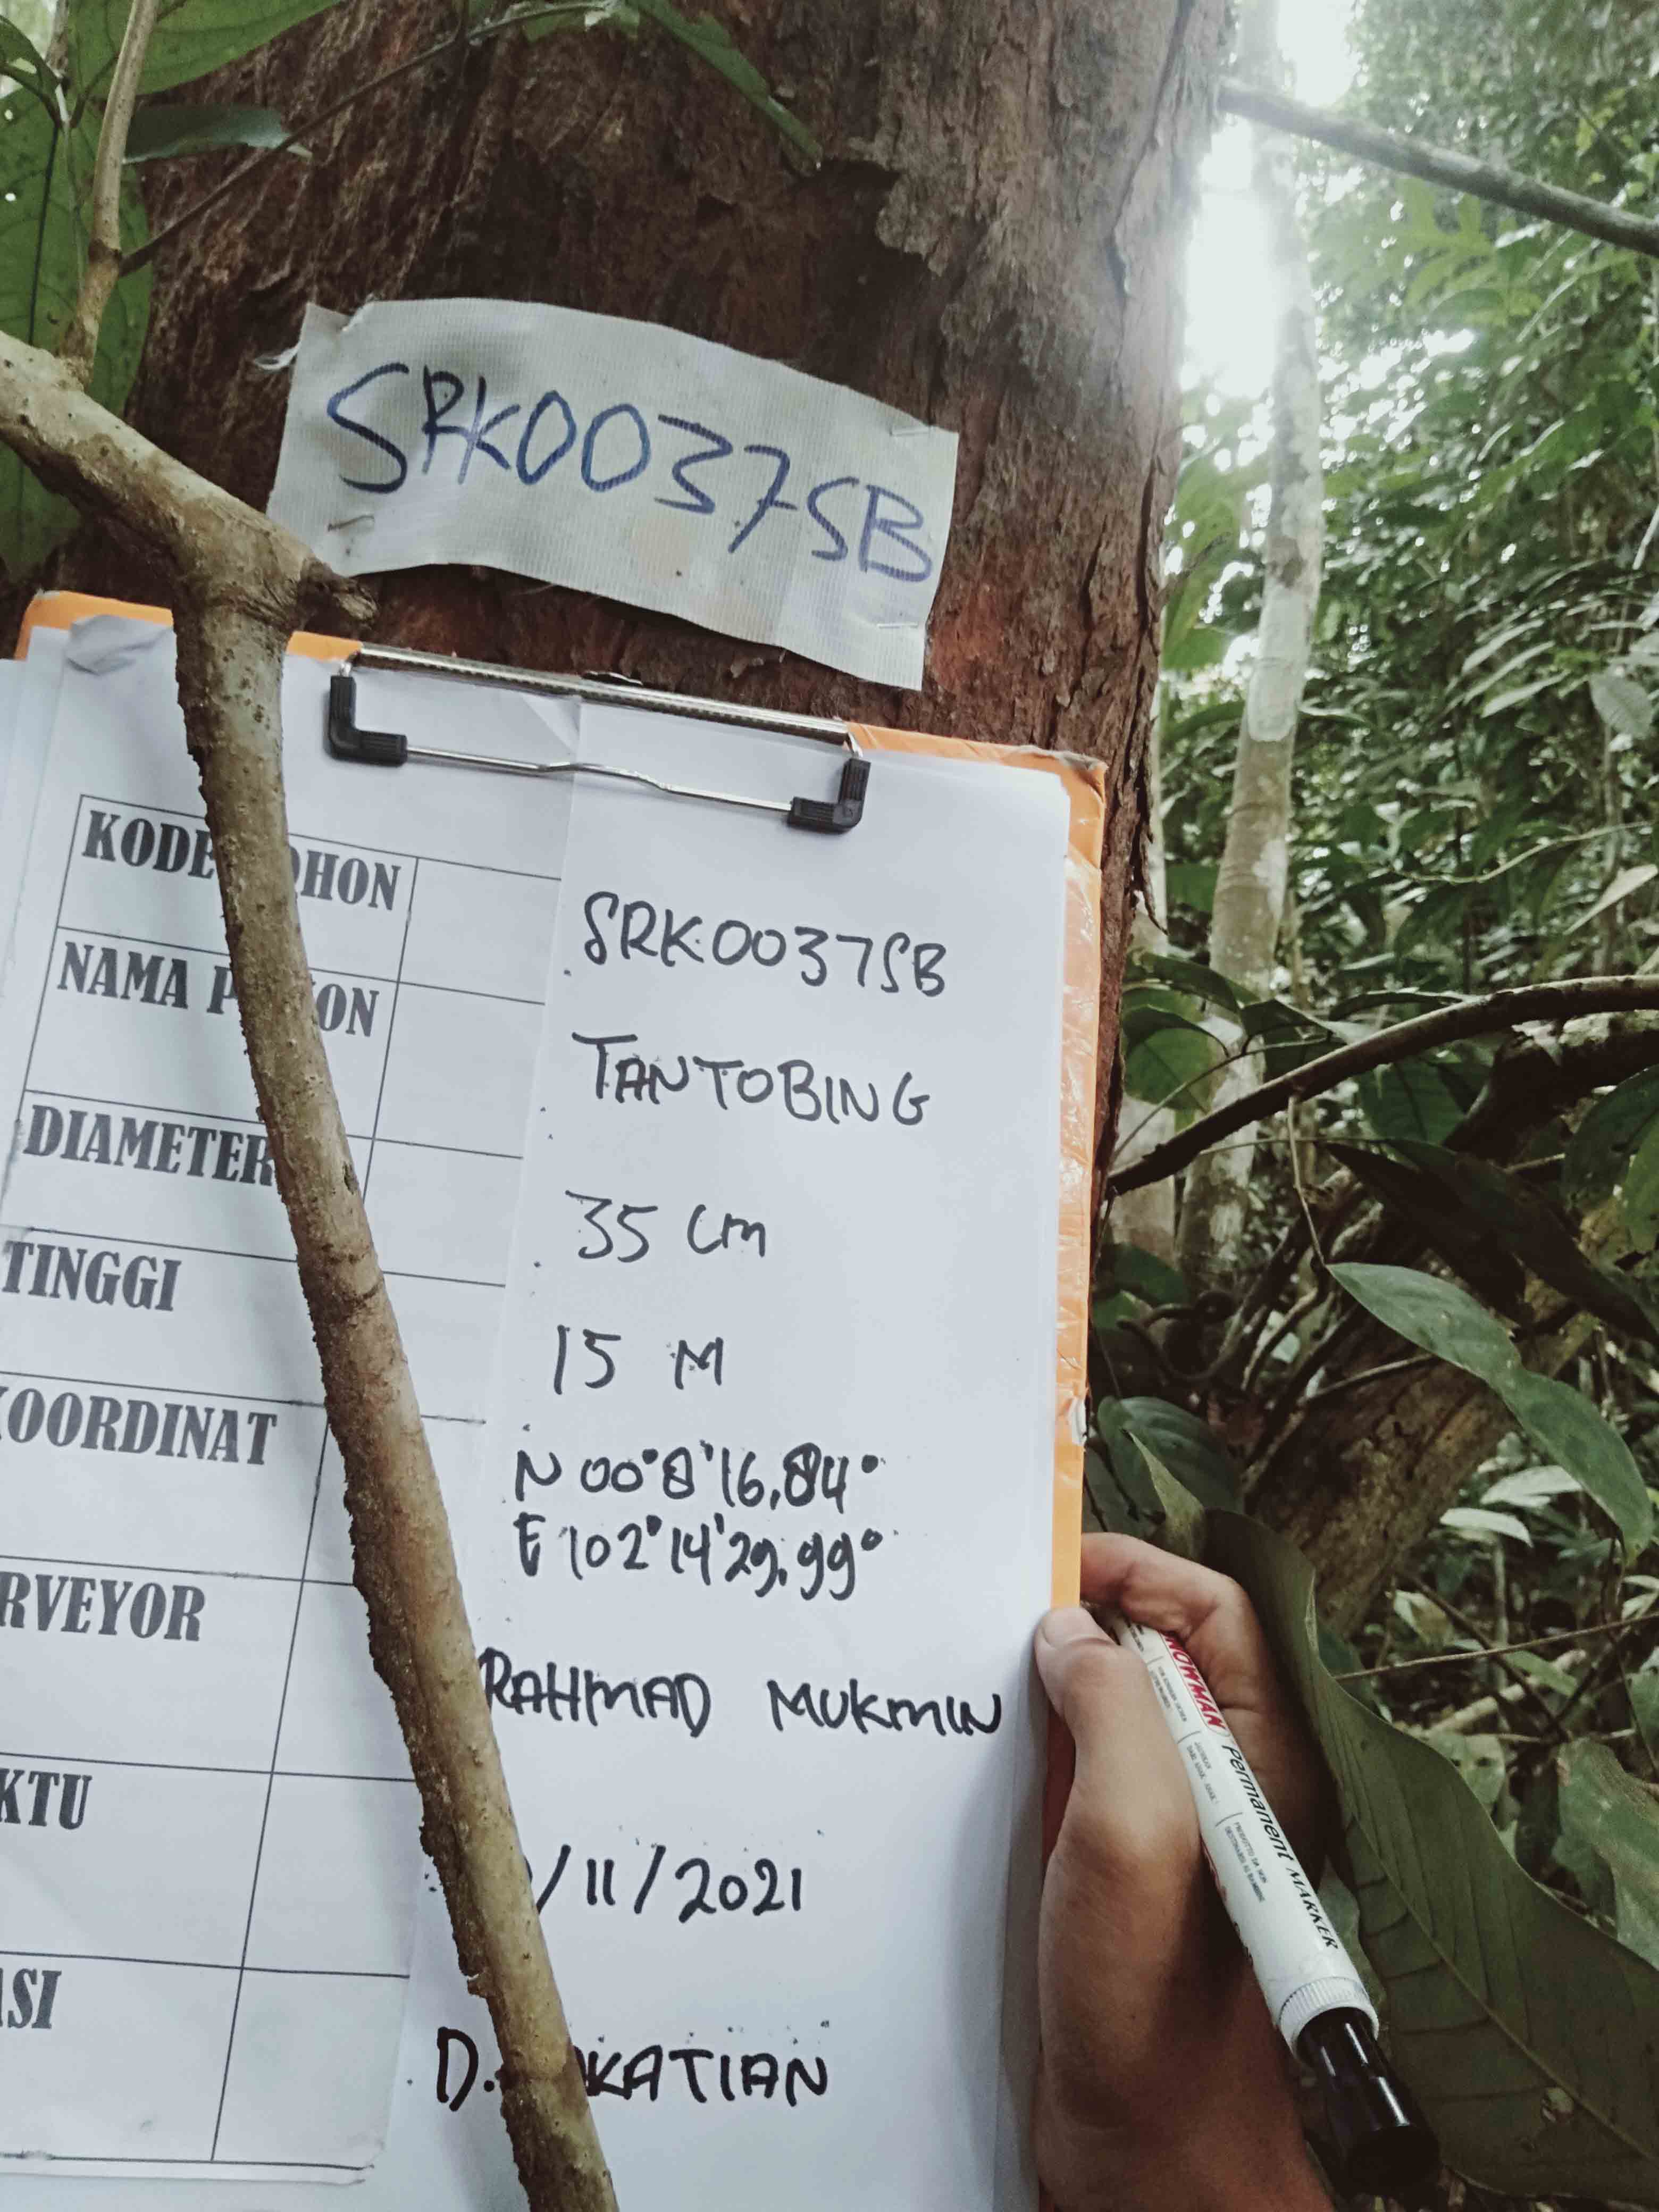 SRK0037SB
KODE POHON SRK0037SB
NAMA POHON TANTOBING
DIAMETER 35 cm
TINGGI 15 M
KOORDINAT N 00°8'16,84°
E 102°14'29,99°
SURVEYOR RAHMAD MUKMIN
KTU /11/2021
ASI D. KATIAN
SNOWMAN Permanent MARKER